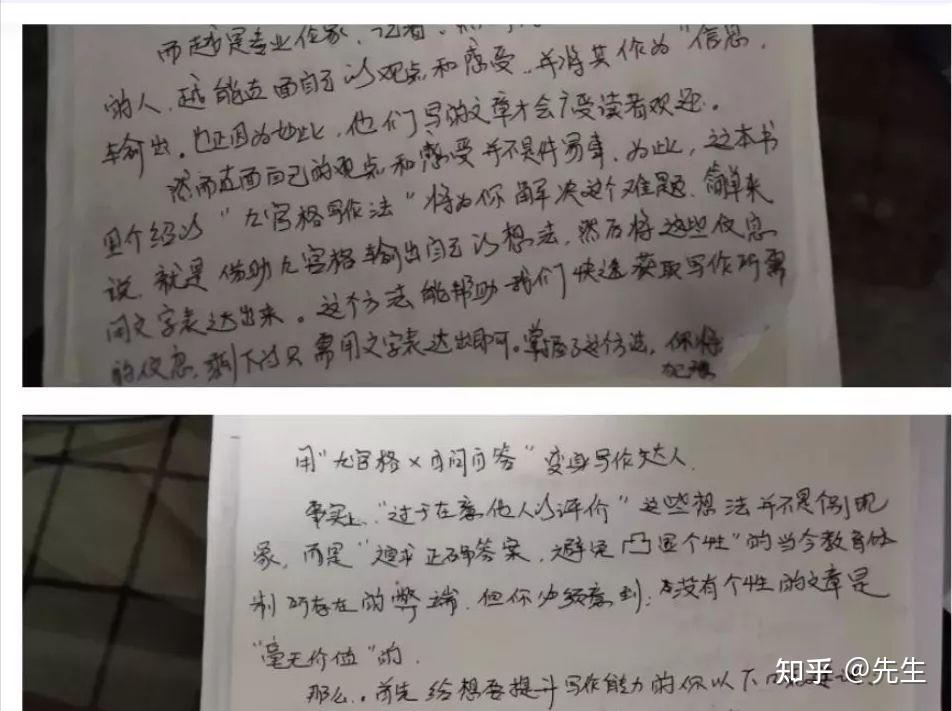 而越是专业作家、记者、
的人，越能直面自己的观点和感受，并将其作为“信息，
输出。也正因为如此，他们写的文章才会广受读者欢迎。
然而直面自己的观点和感受并不是件易事，为此，这本书
里介绍的“九宫格写作法”将为你解决这个难题。简单来
说，就是借助九宫格输出自己的想法，然后将这些信息
用文字表达出来。这个方法能帮助我们快速获取写作所需
的信息，剩下的只需用文字表达出即可。掌握了这个方法，你将
用“九宫格×自问自答”变身写作达人。
事实上，“过于在意他人的评价”这些想法并不是个别现
象，而是“追求正确答案，避免凸显个性”的当今教育体
制所存在的弊端，但你必须意到：没有个性的文章是
“毫无价值”的。
那么，首先给想要提升写作能力的你以下
知乎 @先生